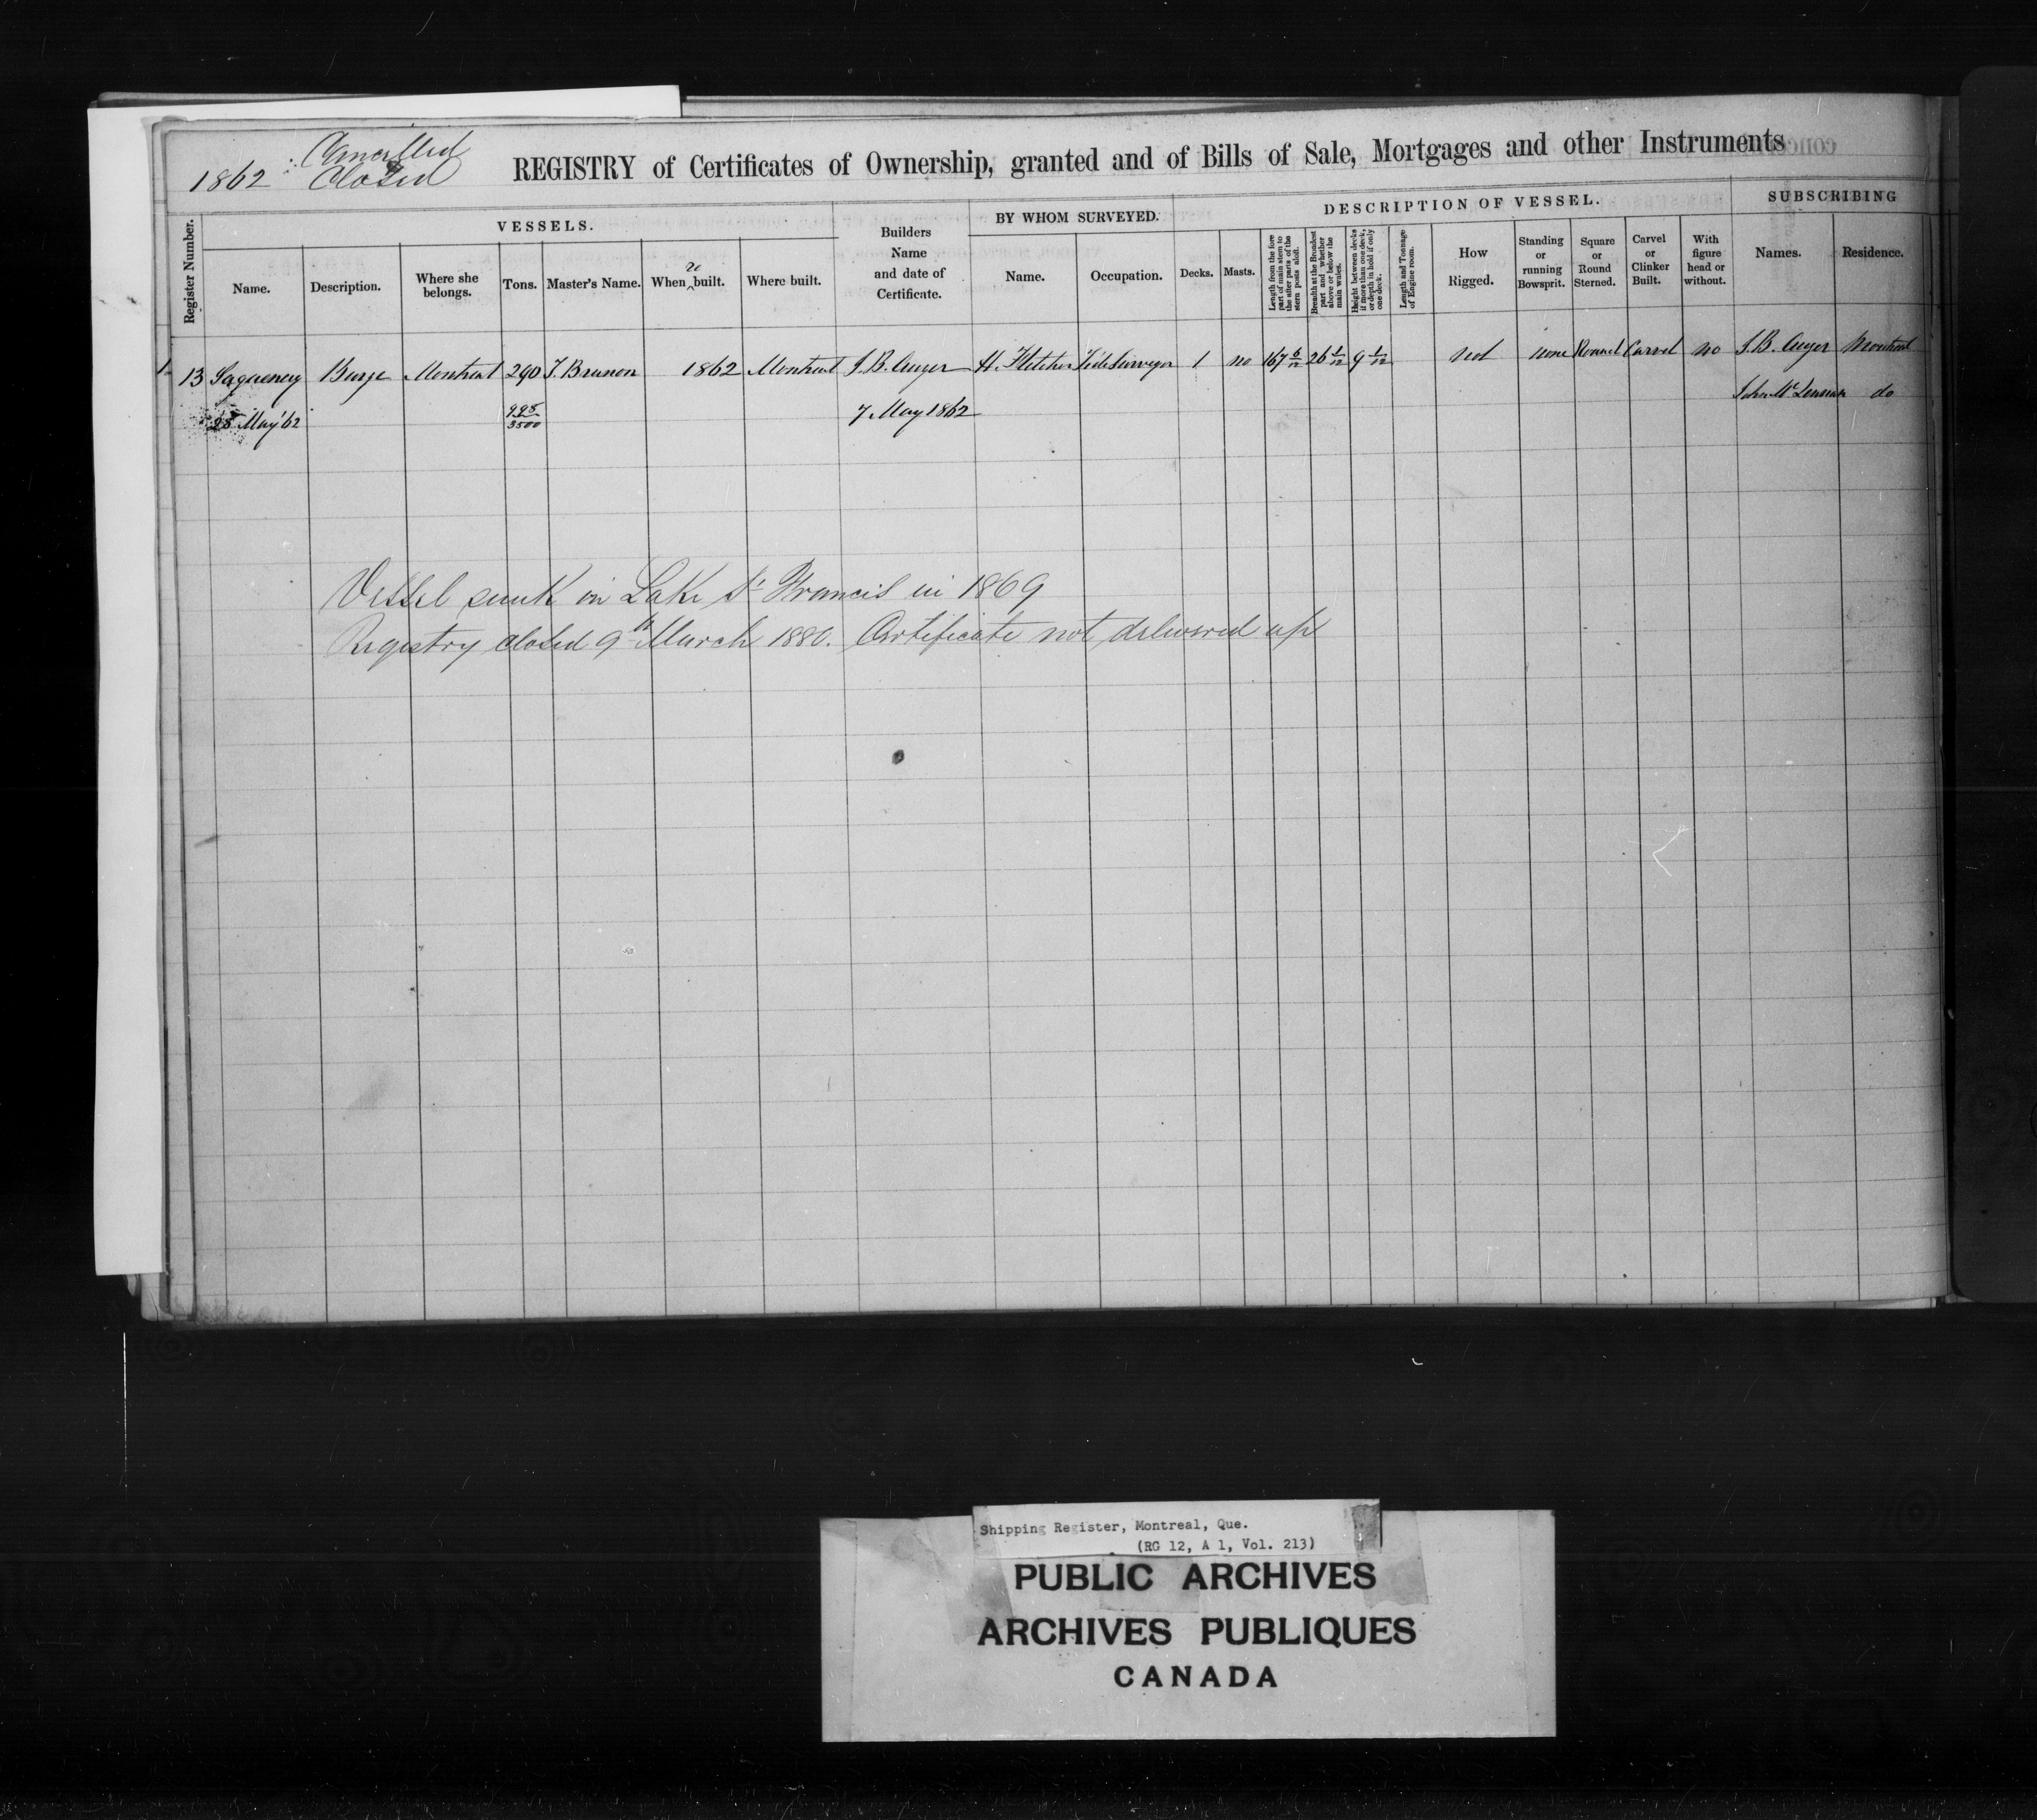 1862
Cancelled
Closed
REGISTRY of Certificates of Ownership, granted and of Bills of Sale, Mortgages and other Instruments
Register Number.
VESSELS.
Name.
Description.
Where she belongs.
Tons.
Master's Name.
When re built.
Where built.
Builders Name and date of Certificate.
BY WHOM SURVEYED.
Name.
Occupation.
DESCRIPTION OF VESSEL.
Decks.
Masts.
Length from the fore part of main stem to the after parts of the stern posts aloft.
Breadth at the Brondest part and whether above or below the main wales.
Height between decks if more than one deck, or depth in hold if only one deck.
Length and Tonnage of Engine room.
How Rigged.
Standing or running Bowsprit.
Square or Round Sterned.
Carvel or Clinker Built.
With figure head or without.
SUBSCRIBING
Names.
Residence.
13 Saguenay Barge Montreal 290 J. Brunon 1862 Montreal J.B. Auger H. Fletcher Tide Surveyor 1 no 167 6/12 26 1/12 9 1/12 not none Round Carvel no J.B. Auger Montreal
John McLennan do
28 May '62 998/3500 7 May 1862
Vessel sunk in Lake St Francis in 1869
Registry closed 9th March 1880. Certificate not delivered up
Shipping Register, Montreal, Que.
(RG 12, A 1, Vol. 213)
PUBLIC ARCHIVES
ARCHIVES PUBLIQUES
CANADA